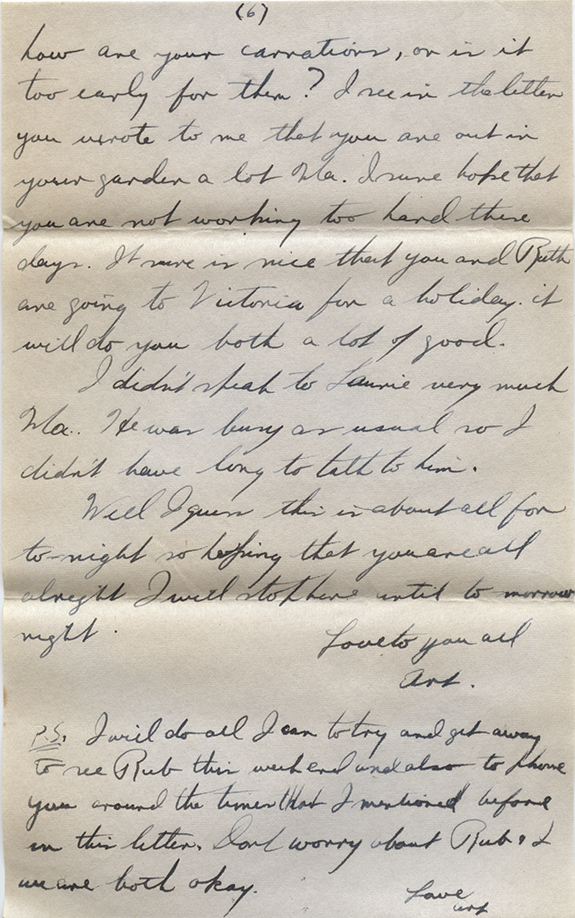 (6)
how are your carnations, or is it
too early for them? I see in the letter
you wrote to me that you are out in
your garden a lot Ma. I sure hope that
you are not working too hard these
days. It sure is nice that you and Ruth
are going to Victoria for a holiday. it
will do you both a lot of good.
I didn't speak to Laurie very much
Ma.. He was busy as usual so I
didn't have long to talk to him.
Well I guess this is about all for
to-night so hoping that you are all
alright I will stop here until to morrow
night.
Love to you all
Art.
P.S. I will do all I can to try and get away
to see Rub this week end and also to phone
you around the times that I mentioned before
in this letter. Dont worry about Rub & I
we are both okay.
Love
Art